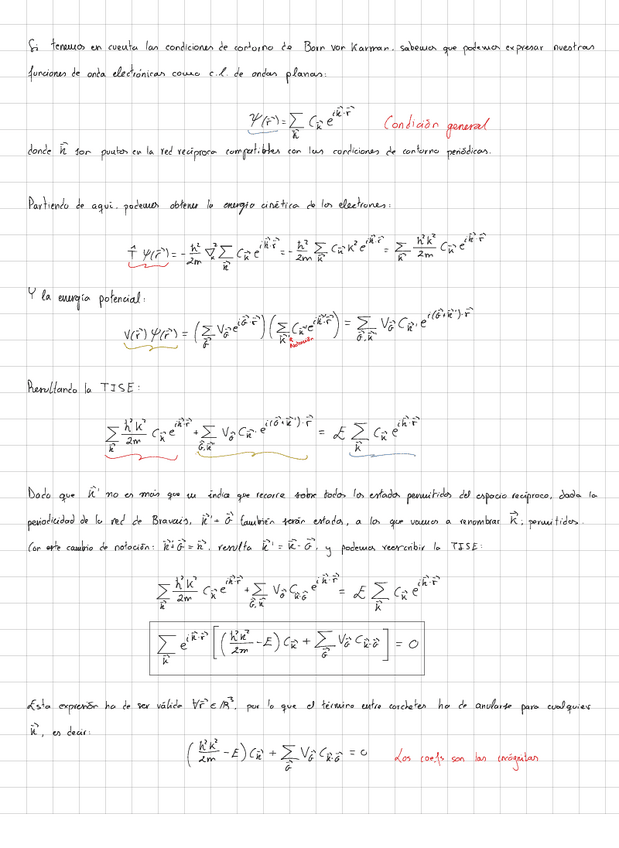 Si tenemos en cuenta las condiciones de contorno de Born von Karman, sabemos que podemos expresar nuestras
funciones de onda electrónicas como c.l. de ondas planas:
Ψ(r⃗) = ∑_k⃗ C_k⃗ e^{ik⃗·r⃗} Condición general
donde k⃗ son puntos en la red recíproca compatibles con las condiciones de contorno periódicas.
Partiendo de aquí, podemos obtener la energía cinética de los electrones:
T̂ Ψ(r⃗) = -ħ²/2m ∇² ∑_k⃗ C_k⃗ e^{ik⃗·r⃗} = -ħ²/2m ∑_k⃗ C_k⃗ k² e^{ik⃗·r⃗} = ∑_k⃗ ħ²k²/2m C_k⃗ e^{ik⃗·r⃗}
Y la energía potencial:
V(r⃗) Ψ(r⃗) = (∑_G⃗ V_G⃗ e^{iG⃗·r⃗}) (∑_k⃗' C_k⃗' e^{ik⃗'·r⃗}) = ∑_{G⃗,k⃗'} V_G⃗ C_k⃗' e^{i(G⃗+k⃗')·r⃗}
Resultando la TISE:
∑_k⃗ ħ²k²/2m C_k⃗ e^{ik⃗·r⃗} + ∑_{G⃗,k⃗'} V_G⃗ C_k⃗' e^{i(G⃗+k⃗')·r⃗} = E ∑_k⃗ C_k⃗ e^{ik⃗·r⃗}
Dado que k⃗' no es más que un índice que recorre sobre todos los estados permitidos del espacio recíproco, dada la
periodicidad de la red de Bravais, k⃗' + G⃗ también serán estados, a los que vamos a renombrar k⃗, permitidos.
Con este cambio de notación: k⃗'+G⃗ = k⃗, resulta k⃗' = k⃗ - G⃗, y podemos reescribir la TISE:
∑_k⃗ ħ²k²/2m C_k⃗ e^{ik⃗·r⃗} + ∑_{G⃗,k⃗} V_G⃗ C_{k⃗-G⃗} e^{ik⃗·r⃗} = E ∑_k⃗ C_k⃗ e^{ik⃗·r⃗}
∑_k⃗ e^{ik⃗·r⃗} [(ħ²k²/2m - E) C_k⃗ + ∑_G⃗ V_G⃗ C_{k⃗-G⃗}] = 0
Esta expresión ha de ser válida ∀r⃗ ∈ ℝ³, por lo que el término entre corchetes ha de anularse para cualquier
k⃗, es decir:
(ħ²k²/2m - E) C_k⃗ + ∑_G⃗ V_G⃗ C_{k⃗-G⃗} = 0 Los coefs son las incógnitas